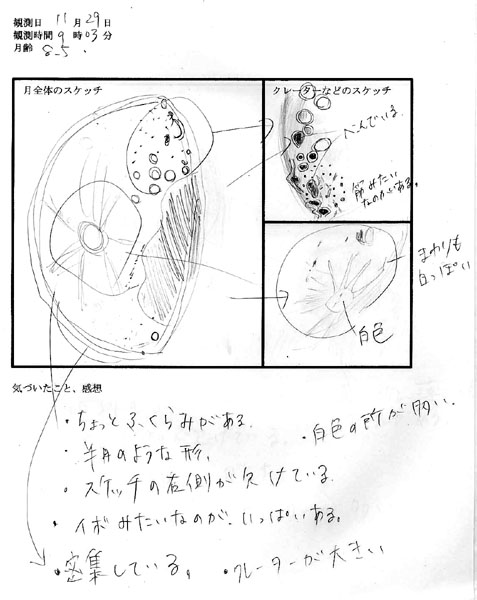 観測日 11月29日
観測時間 9時03分
月齢 8.5.
月全体のスケッチ
クレーターなどのスケッチ
へんでいる.
筋みたい
なのがある。
まわりも
白っぽい
白色
気づいたこと、感想
・ちょっとふくらみがある.
・白色の所が多い.
・半月のような形.
・スケッチの右側が欠けている.
・イボみたいなのが、いっぱいある。
・密集している。 ・クレーターが大きい